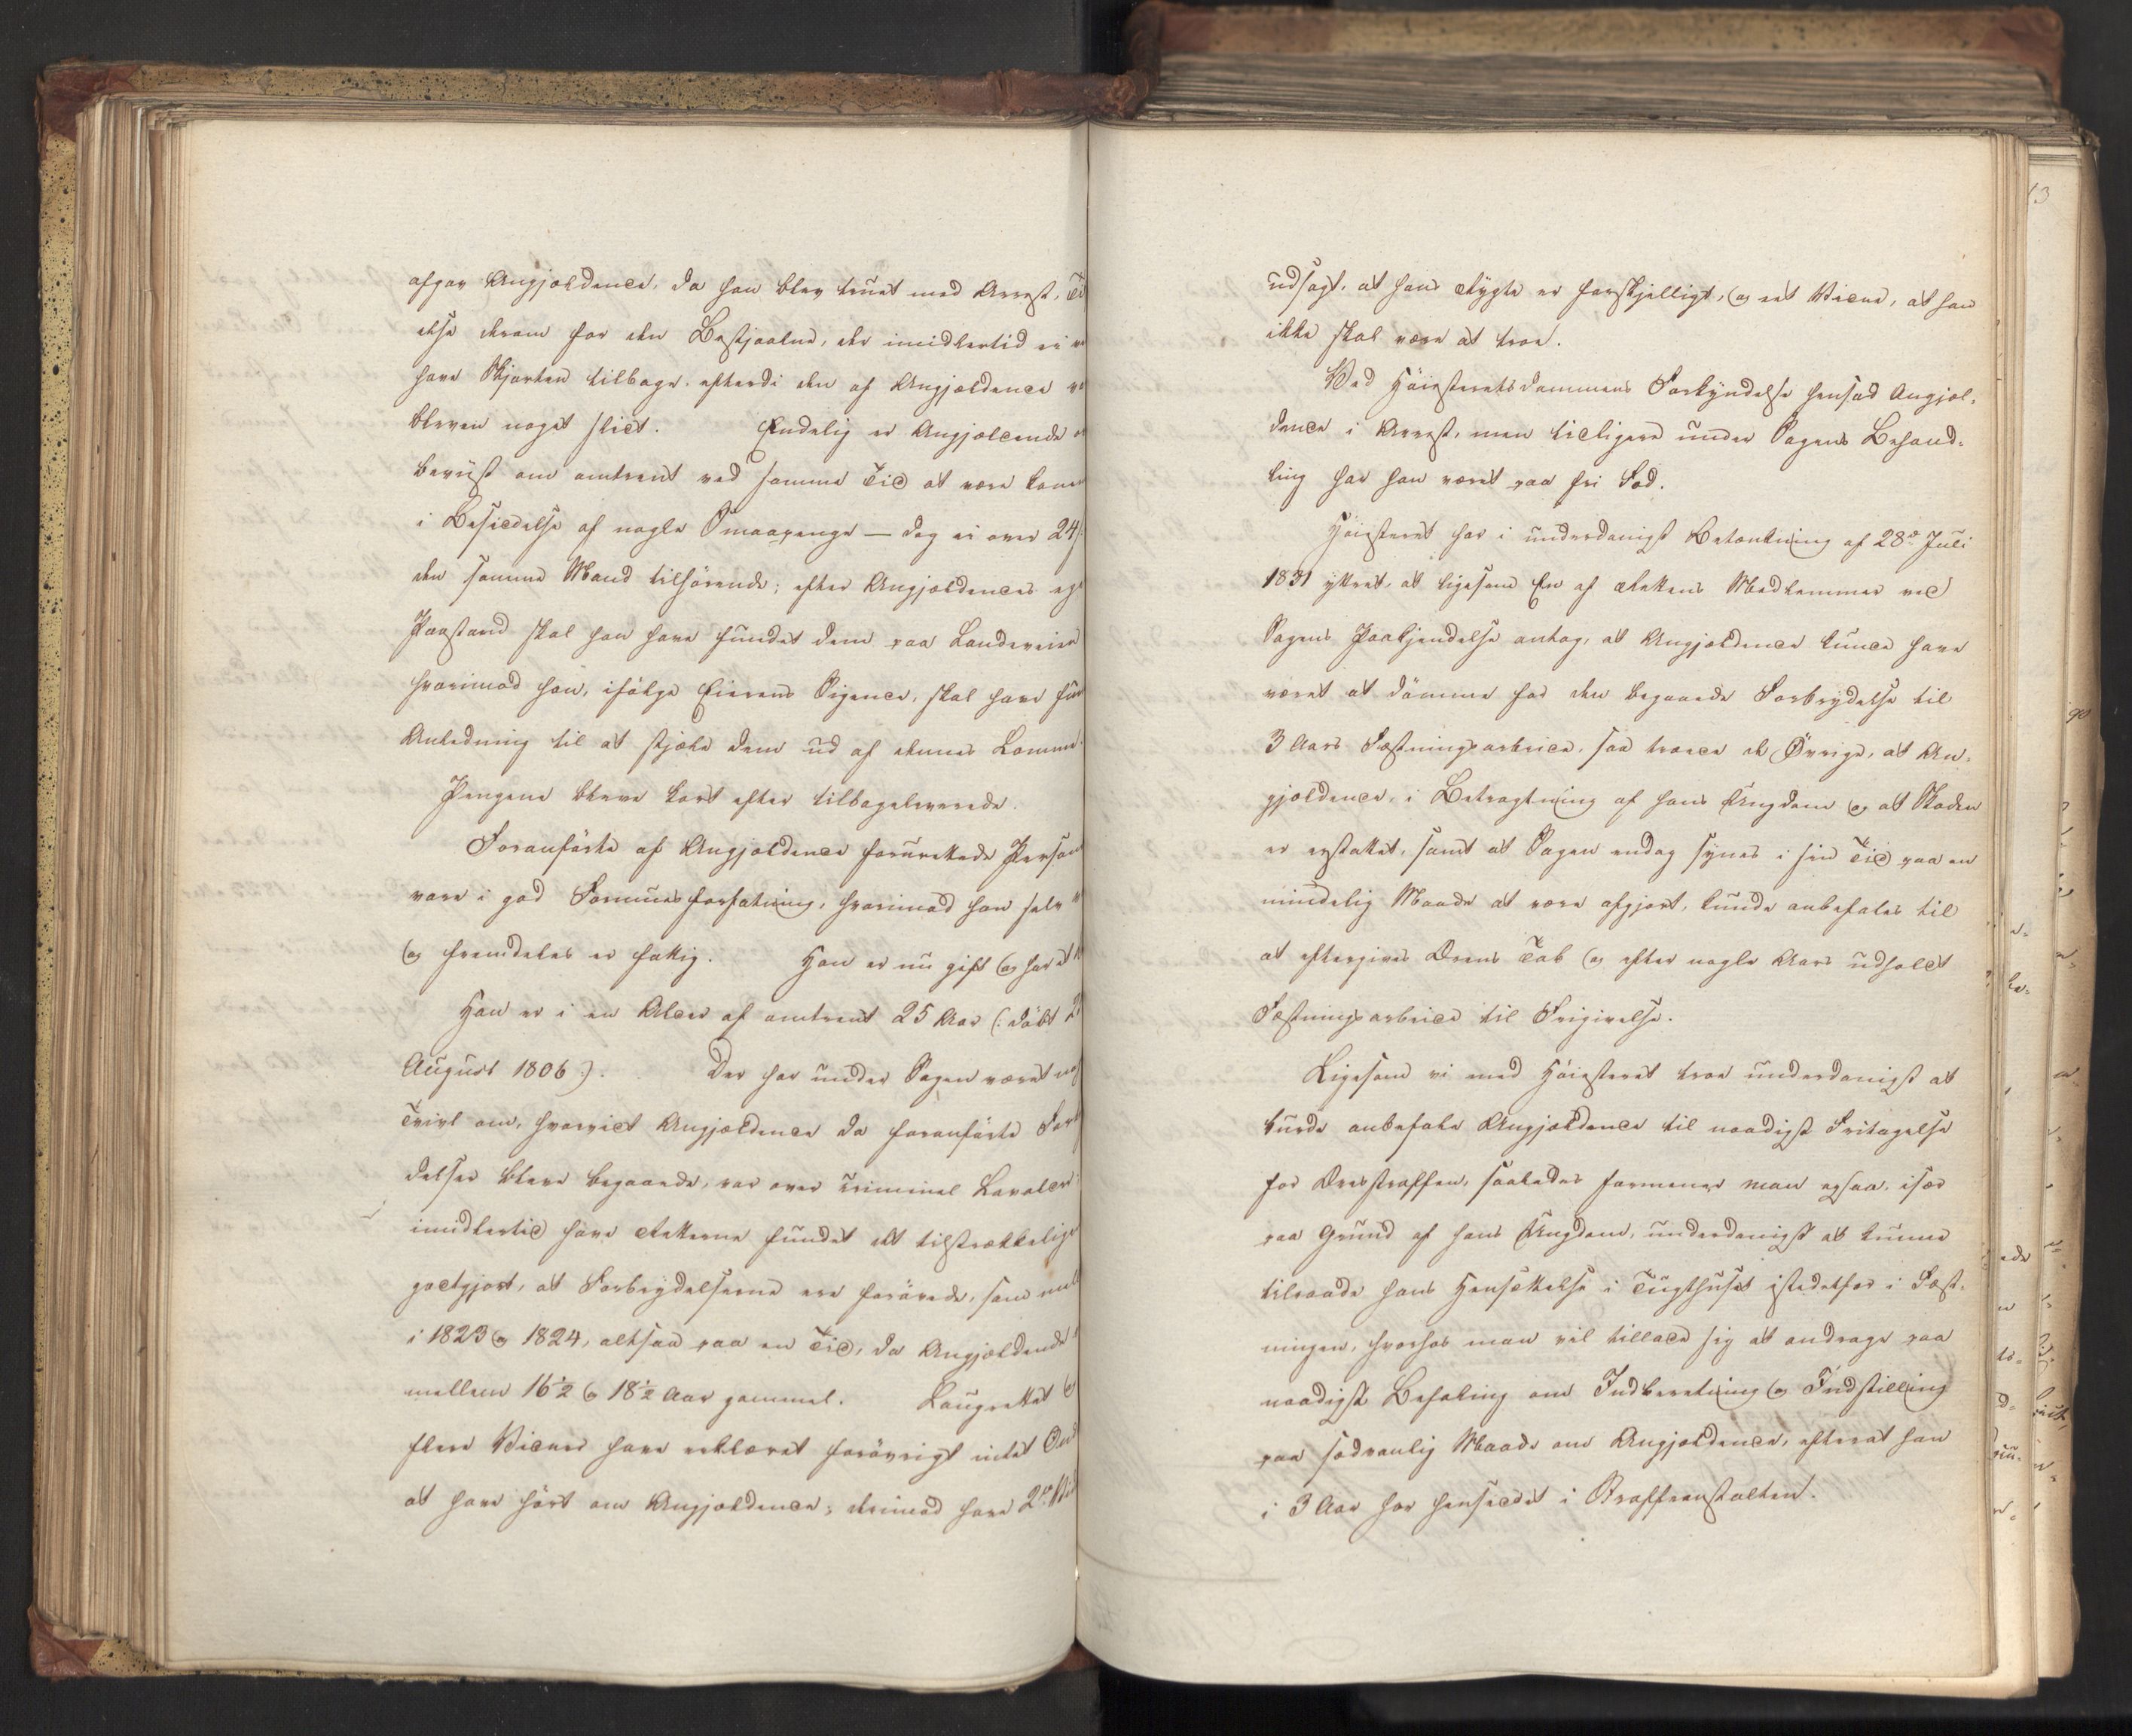 afgav Angjældende, da han blev truet med Arrest,
else derom for den Bestjaalne, der imidlertid ei
have Skjorten tilbage, efterdi den af Angjældende
bleven noget slidt. Endelig er Angjældende
beviist om omtrent ved samme Tid at være kommen
i Besiddelse af nogle Smaapenge — dog ei over 24
den samme Mand tilhørende; efter Angjældendes
Paastand skal han have fundet dem paa Landeveien
hvorimod han, ifølge Eierens Sigende, skal have
Anledning til at stjæle dem ud af dennes Lomme.
Pengene bleve kort efter tilbageleverede.
Foranførte af Angjældende forurettede Personer
vare i god Formuesforfatning, hvorimod han selv
og fremdeles er fattig. Han er nu gift og har et
Han er i en Alder af omtrent 25 Aar (: døbt
August 1806 :). Der har under Sagen været
Tvivl om, hvorvidt Angjældende da foranførte
delser bleve begaaede, var over criminel Lavalder
imidlertid have Retterne fundet det tilstrækkelige
godtgjort, at Forbrydelserne ere forøvede,
i 1823 og 1824, altsaa paa en Tid, da Angjældende
mellem 16½ og 18½ Aar gammel. Laugrettet
flere Vidner have erklæret forøvrigt intet Ondt
at have hørt om Angjældende; derimod have 2de
udsagt, at hans Rygte er forskjelligt, og eet Vidne, at han
ikke skal være at troe.
Ved Høiesteretsdommens Forkyndelse hensad Angjæl-
dende i Arrest, men tidligere under Sagens Behand-
ling har han været paa fri Fod.
Høiesteret har i underdanigst Betænkning af 28de Juli
1831 yttret, at ligesom En af Rettens Medlemmer ved
Sagens Paakjendelse antog, at Angjældende kunde have
været at dømme for den begaaede Forbrydelse til
3 Aars Fæstningsarbeide, saa troede de Øvrige, at An-
gjældende, i Betragtning af hans Ungdom og at Skaden
er erstattet, samt at Sagen endog synes i sin Tid paa en
mindelig Maade at være afgjort, kunde anbefales til
at eftergives Ærens Tab og efter nogle Aars udholdt
Fæstningsarbeide til Frigivelse.
Ligesom vi med Høiesteret troe underdanigst at
burde anbefale Angjældende til naadigst Fritagelse
for Æresstraffen, saaledes formener man ogsaa, især
paa Grund af hans Ungdom, underdanigst at kunne
tilraade hans Hensættelse i Tugthuset istedetfor i Fæst-
ningen, hvorhos man vil tillade sig at andrage paa
naadigst Befaling om Indberetning og Indstilling
paa sædvanlig Maade om Angjældende, efterat han
i 3 Aar har hensiddet i Straffeanstalten.